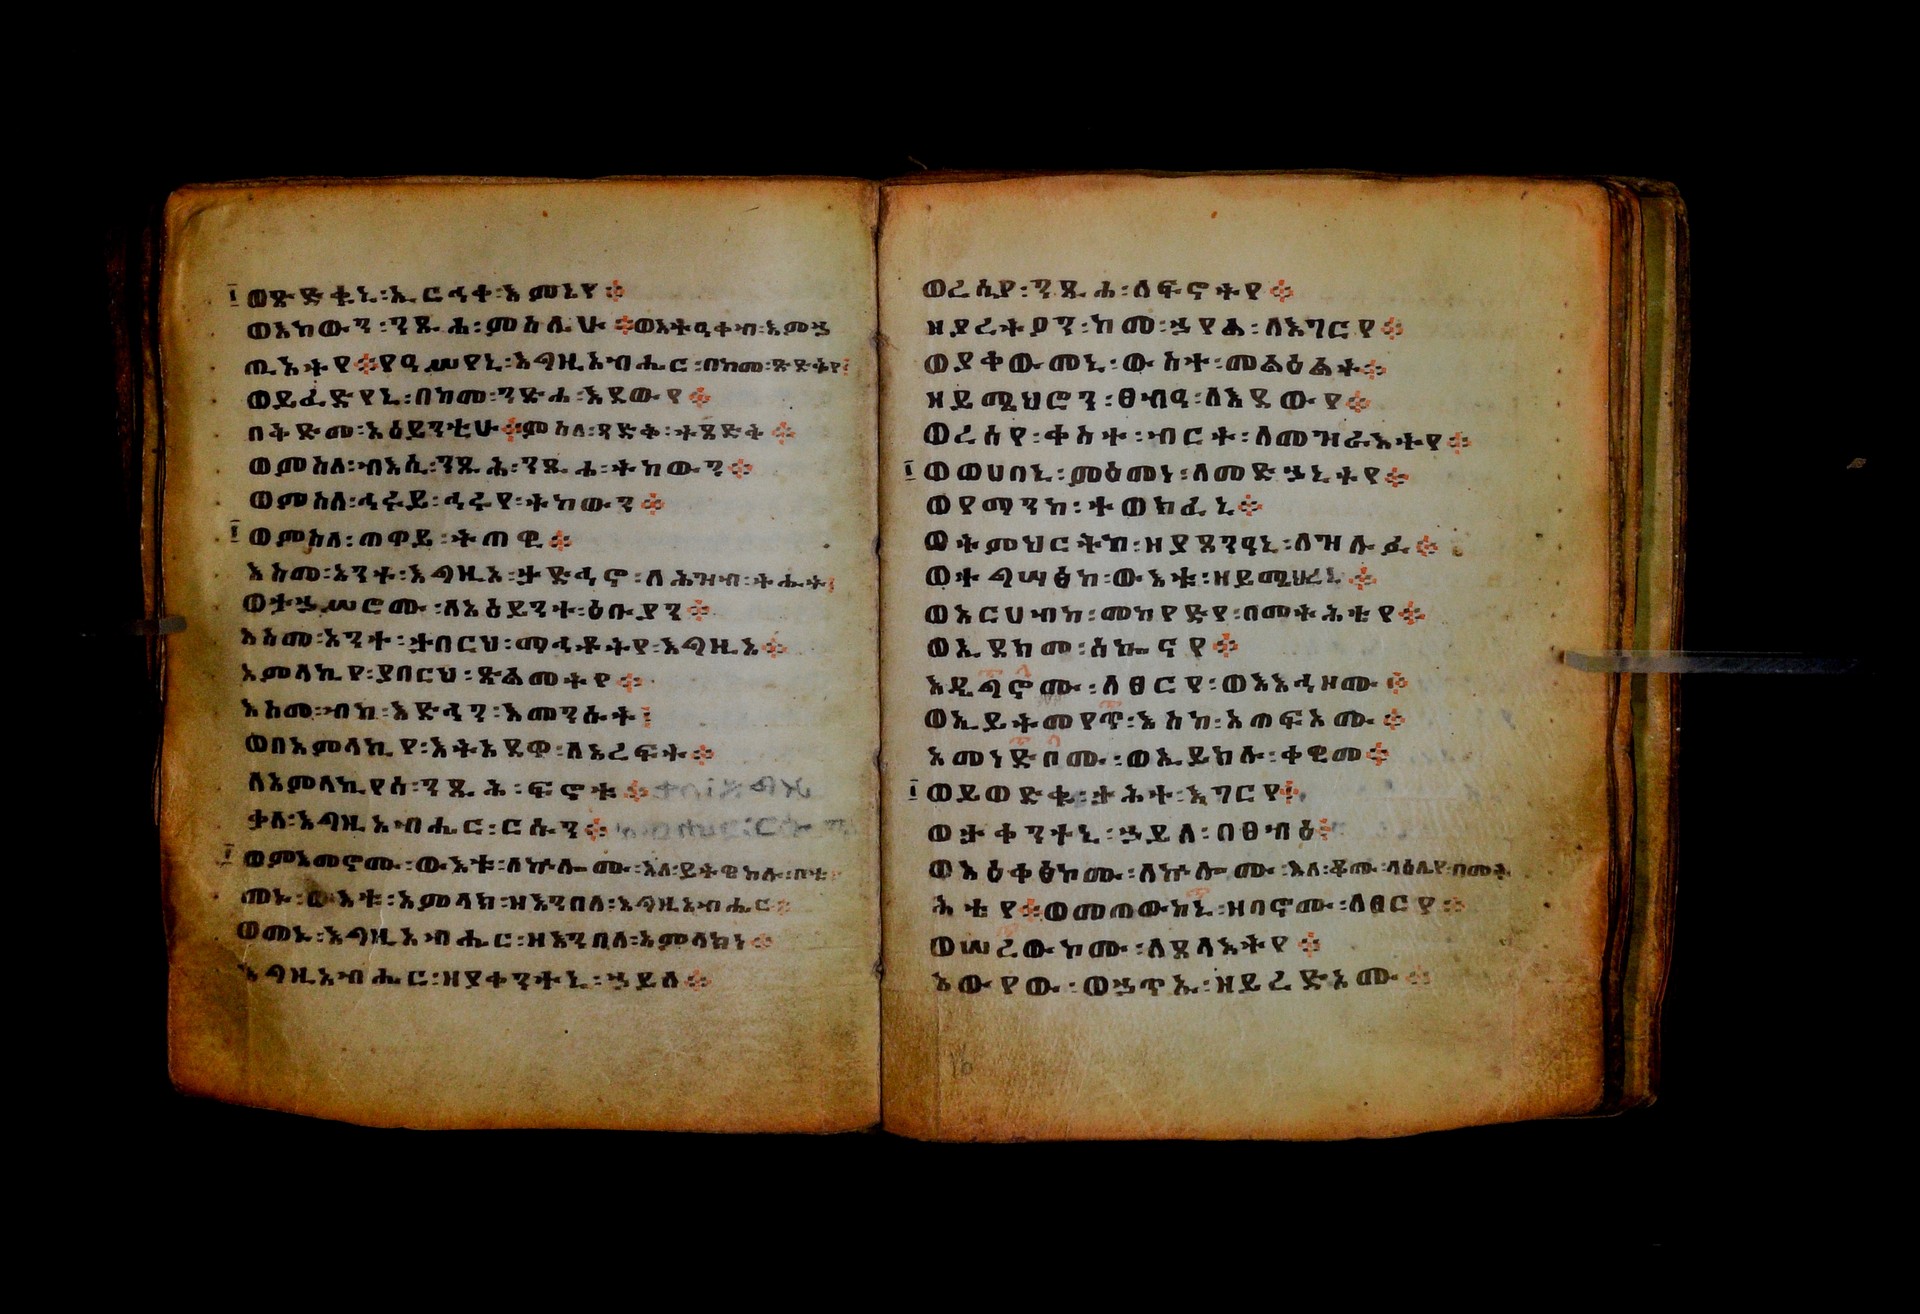 ፲ ወጽድቂኒ፡ኢርኅቀ፡እምኔየ፨
ወእከውን፡ንጹሐ፡ምስሌሁ፨ወእትዓቀብ፡እምኃ
ጢአትየ፨የዓሥየኒ፡እግዚአብሔር፡በከመ፡ጽድቅየ፨
ወይፈድየኒ፡በከመ፡ንጽሐ፡እደውየ፨
በቅድመ፡አዕይንቲሁ፨ምስለ፡ጻድቅ፡ትጼድቅ፨
ወምስለ፡ብእሲ፡ንጹሕ፡ንጹሐ፡ትከውን፨
ወምስለ፡ኅሩይ፡ኅሩየ፡ትከውን፨
፲ ወምስለ፡ጠዋይ፡ትጠዊ፨
እስመ፡አንተ፡እግዚኦ፡ታድኅኖ፡ለሕዝብ፡ትሑት፨
ወታኃሥሮሙ፡ለአዕይንተ፡ዕቡያን፨
እስመ፡አንተ፡ታበርህ፡ማኅቶትየ፡እግዚኦ፨
አምላኪየ፡ያበርህ፡ጽልመትየ፨
እስመ፡ብከ፡እድኅን፡እመንሱት፨
ወበአምላኪየ፡እትአደዋ፡ለአረፍት፨
ለአምላኪየሰ፡ንጹሕ፡ፍኖቱ፨
ቃለ፡እግዚአብሔር፡ርሱን፨
፲ ወምእመኖሙ፡ውእቱ፡ለኵሎሙ፡እለ፡ይትዌከሉ፡ቦቱ፨
መኑ፡ውእቱ፡አምላክ፡ዘእንበለ፡እግዚአብሔር፨
ወመኑ፡እግዚአብሔር፡ዘእንበለ፡አምላክነ፨
እግዚአብሔር፡ዘያቀንተኒ፡ኃይለ፨
ወረሰየ፡ንጹሐ፡ለፍኖትየ፨
ዘያረትዖን፡ከመ፡ኃየል፡ለእገርየ፨
ወያቀውመኒ፡ውስተ፡መልዕልት፨
ዘይሜህሮን፡ፀብዓ፡ለእደውየ፨
ወረሰየ፡ቀስተ፡ብርት፡ለመዝራእትየ፨
፲ ወወሀበኒ፡ምዕመነ፡ለመድኃኒትየ፨
ወየማንከ፡ተወክፈኒ፨
ወትምህርትከ፡ዘያጸንዓኒ፡ለዝሉፉ፨
ወተግሣፅከ፡ውእቱ፡ዘይሜህረኒ፨
ወአርህብከ፡መከየድየ፡በመትሕቴየ፨
ወኢደክመ፡ሰኰናየ፨
እዴግኖሙ፡ለፀርየ፡ወእእኅዞሙ፨
ወኢይትመየጥ፡እስከ፡አጠፍኦሙ፨
አመነድቦሙ፡ወኢይክሉ፡ቀዊመ፨
፲ ወይወድቁ፡ታሕተ፡እገርየ፨
ወታቀንተኒ፡ኃይለ፡በፀብዕ፨
ወአዕቀፅከሙ፡ለኵሎሙ፡እለ፡ቆሙ፡ላዕሌየ፡በመት
ሕቴየ፨ወመጠውከኒ፡ዘባኖሙ፡ለፀርየ፨
ወሠረውከሙ፡ለጸላእትየ፨
አውየው፡ወኃጥኡ፡ዘይረድኦሙ፨